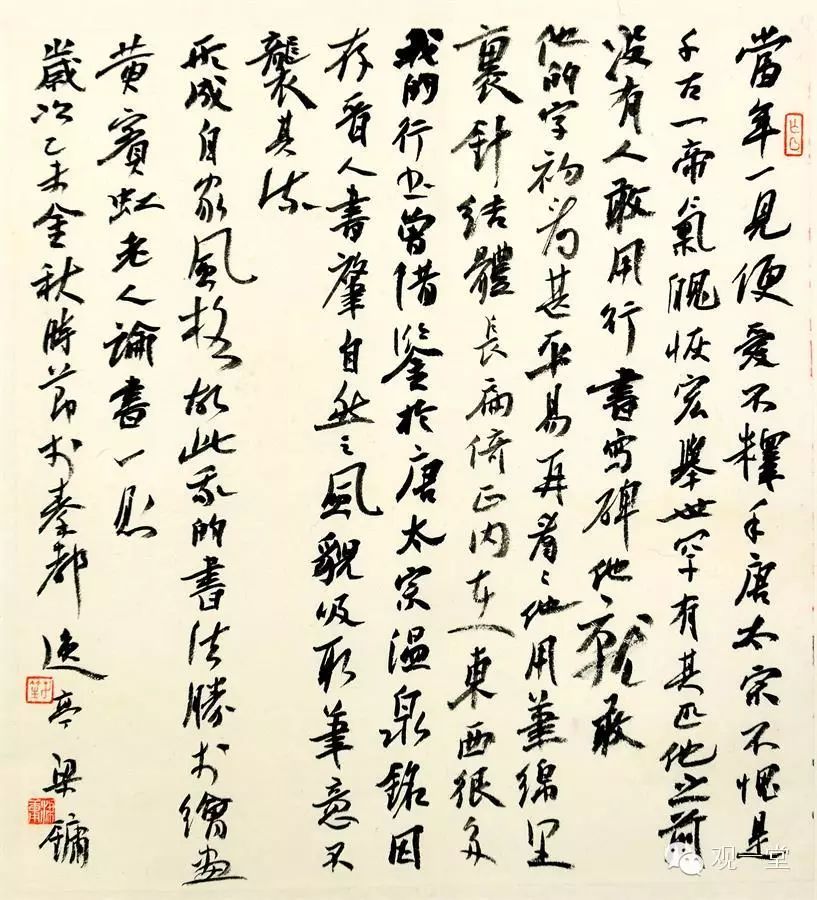 當年一見便愛不釋手唐太宗不愧是
千古一帝氣魄恢宏舉世罕有其匹他之前
没有人敢用行書寫碑他就敢
他的字初看甚平易再看看他用筆綿里
裹針結體長扁倚正内在東西很多
我的行书曾借鑒於唐太宗温泉銘因
存晋人書肇自然之風貌吸取筆意不
襲其法
形成自家風格故此我的書法勝於繪畫
黄賓虹老人論書一則
歲次乙未金秋時節於秦都 逸亭梁鏞
观一堂